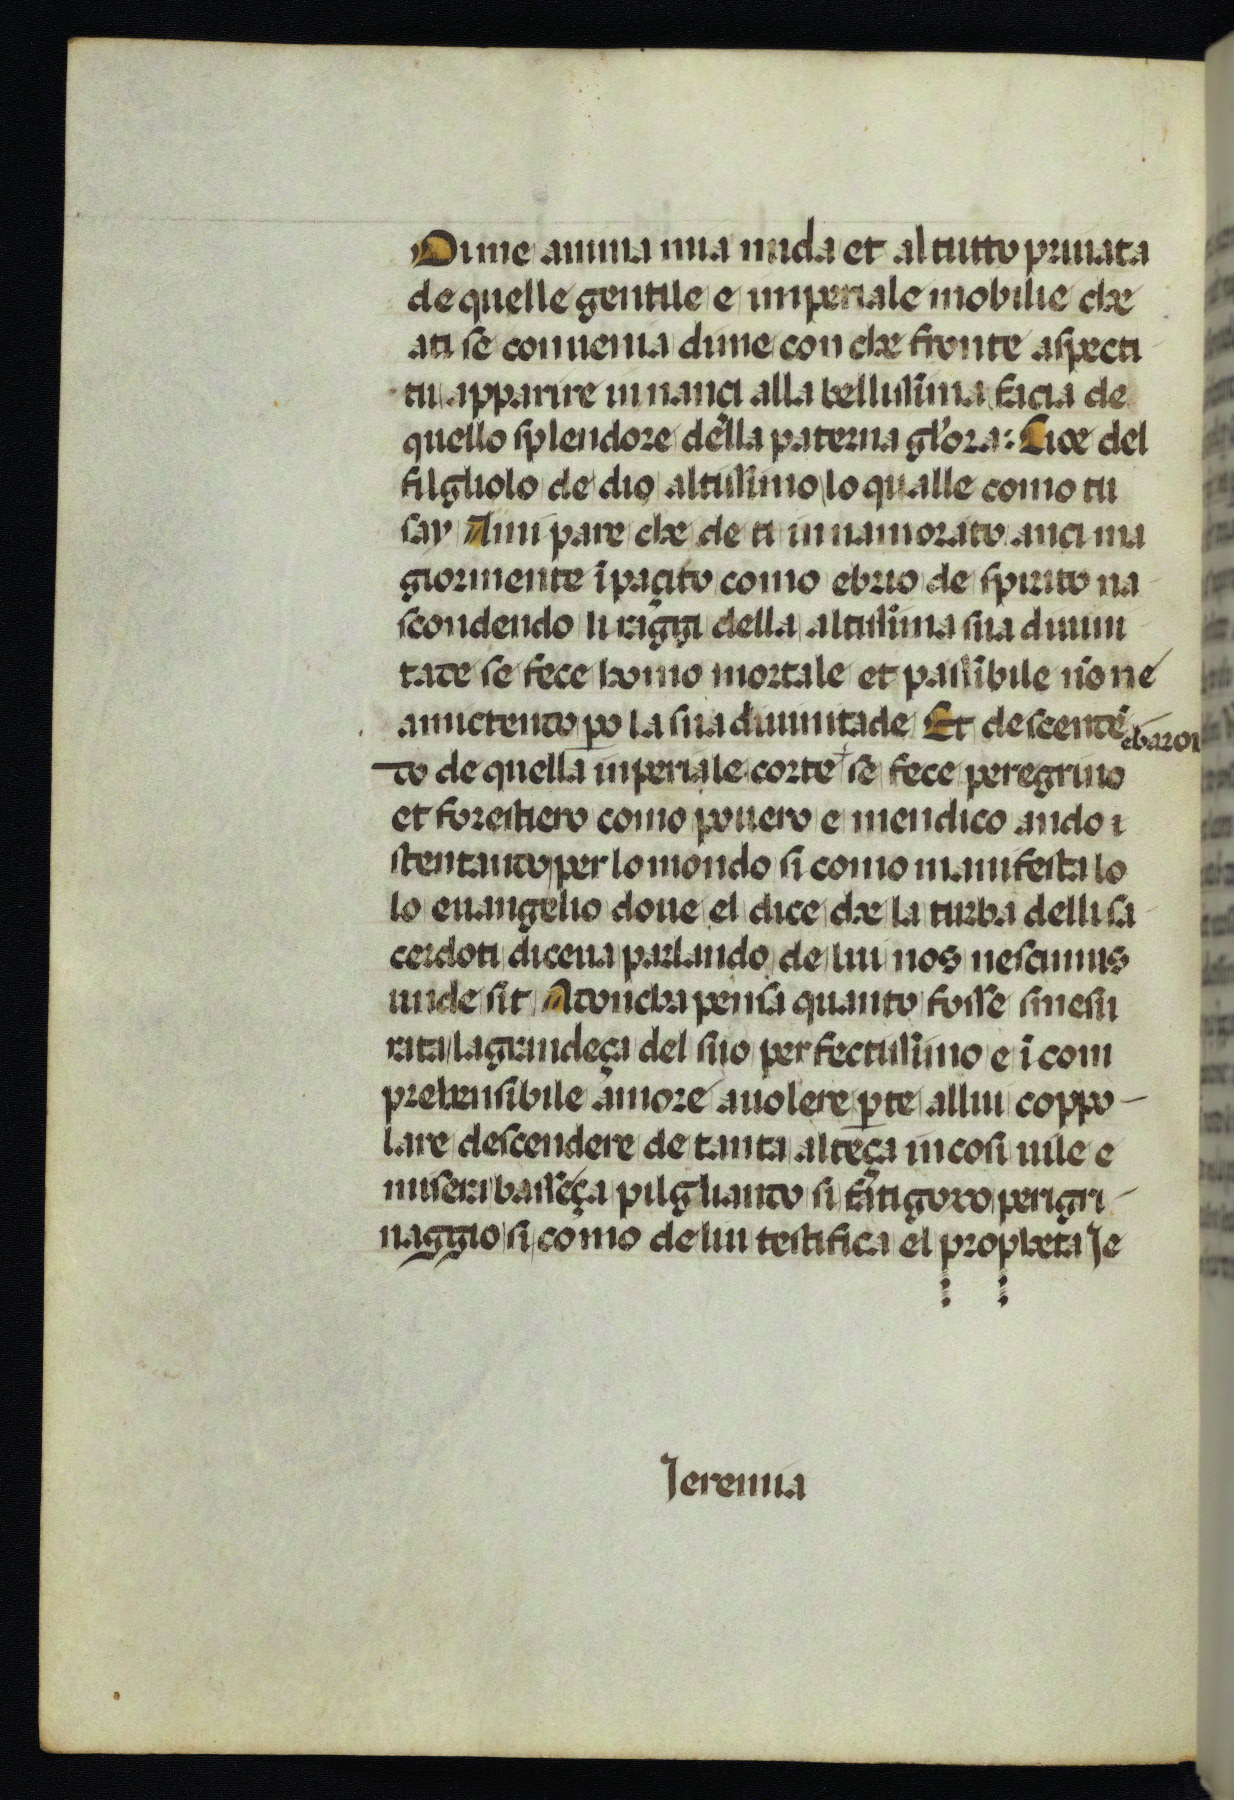 Dime anima mia nuda et al tutto priuata
de quelle gentile e imperiale mobilie che
a ti se conuenia dime con che fronte aspecti
tu apparire in nanci alla bellissima facia de
quello splendore della paterna gl'ora: Cioe del
filgliolo de dio altissimo lo qualle como tu
say A mi pare che de ti in namorato anci ma
giormente īpaçito como ebrio de spirito na
scondendo li raggi della altissima sua diuini
tate se fece homo mortale et passibile nō ne
amictento po la sua diuinitade Et descente
to de quella inperiale corte se fece peregrino
et forestiero como pouero e mendico ando i
stentanto per lo mondo si como manifesta lo
lo euangelio doue el dice che la turba delli sa
cerdoti diceua parlando de lui nos nescimus
unde sit Adoncha pensa quanto fosse smesu
rata la grandeça del suo perfectissimo e ī com
prehensibile amore a uolere pte allui coppo
lare descendere de tanta alteça in cosi uile e
misera basseça pilglianto si fatigoxo perigri
naggio si como de lui testifica el propheta Je
Jeremia